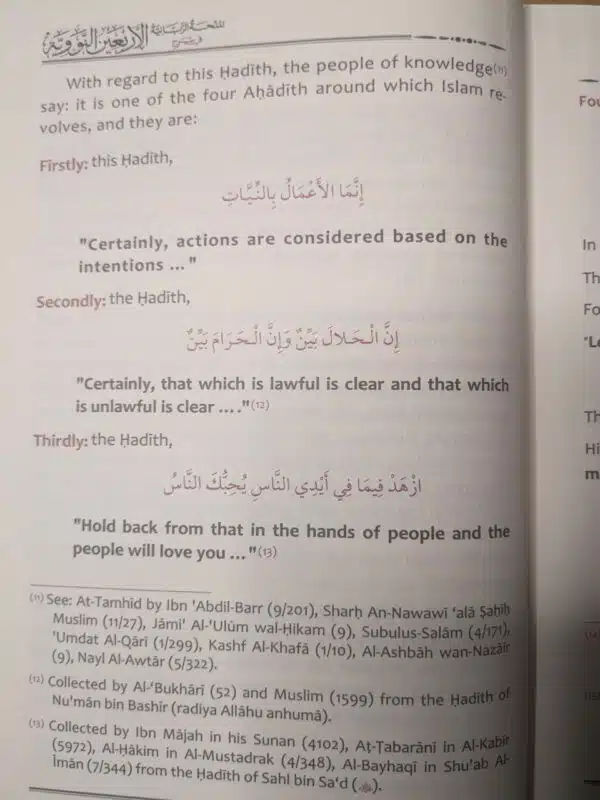 للمنحة الربانية في شرح الأربعين النووية
With regard to this Ḥadīth, the people of knowledge(11)
say: it is one of the four Aḥādīth around which Islam re-
volves, and they are:
Firstly: this Ḥadīth,
إِنَّمَا الأَعْمَالُ بِالنِّيَّاتِ
"Certainly, actions are considered based on the
intentions ... "
Secondly: the Ḥadīth,
إِنَّ الْحَلالَ بَيِّنٌ وَإِنَّ الْحَرَامَ بَيِّنٌ
"Certainly, that which is lawful is clear and that which
is unlawful is clear ...."(12)
Thirdly: the Ḥadīth,
ازْهَدْ فِيمَا فِي أَيْدِي النَّاسِ يُحِبُّكَ النَّاسُ
"Hold back from that in the hands of people and the
people will love you ... "(13)
(11) See: At-Tamhīd by Ibn 'Abdil-Barr (9/201), Sharḥ An-Nawawī 'alā Ṣaḥīḥ
Muslim (11/27), Jāmi' Al-'Ulūm wal-Ḥikam (9), Subulus-Salām (4/171),
'Umdat Al-Qārī (1/299), Kashf Al-Khafā (1/10), Al-Ashbāh wan-Nazāir
(9), Nayl Al-Awtār (5/322).
(12) Collected by Al-'Bukhārī (52) and Muslim (1599) from the Ḥadīth of
Nu'mān bin Bashīr (radiya Allāhu anhumā).
(13) Collected by Ibn Mājah in his Sunan (4102), Aṭ-Ṭabarānī in Al-Kabīr
(5972), Al-Ḥākim in Al-Mustadrak (4/348), Al-Bayhaqī in Shu'ab Al-
Īmān (7/344) from the Ḥadīth of Sahl bin Sa'd ().
Fou
In
Th
Fo
"Le
Th
Hi
m